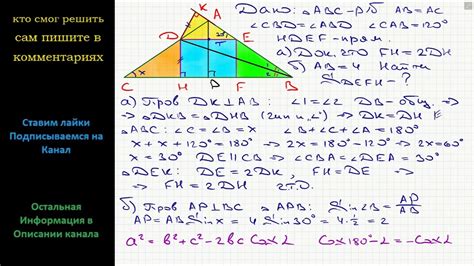 кто смог решить
сам пишите в
комментариях
Ставим лайки
Подписываемся на
Канал
Остальная
Информация в
Описании канала
K
A
D
T
E
x
2x
x
C
H
P
F
B
Дано: △ABC-р/б AB=AC
∠CBD=∠ABD ∠CAB=120°
HDEF-прям.
а) Док.что FH=2DH
б) AB=4 Найти
S DEFH-?
а) Пров DK⊥AB: ∠1=∠2 DB-общ. ⇒
⇒ △DKB=△DHB (2 или ∠) ⇒ DK=DH
△ABC: ∠C=∠B=x ∠B+∠C+∠A=180°
x+x+120°=180° ⇒ 2x=180°-120° ⇒ 2x=60°
x=30° DE∥CB ⇒ ∠CBA=∠DEA=30°
△DEK: DE=2DK, FH=DE ⇒
⇒ FH=2DH ч.т.д.
б) Пров AP⊥BC △APB: Sin∠B=AP/AB
AP=AB Sin x=4 Sin30°=4·1/2=2
a²=b²+c²-2bc Cos∠ Cos180°-∠=-Cos∠